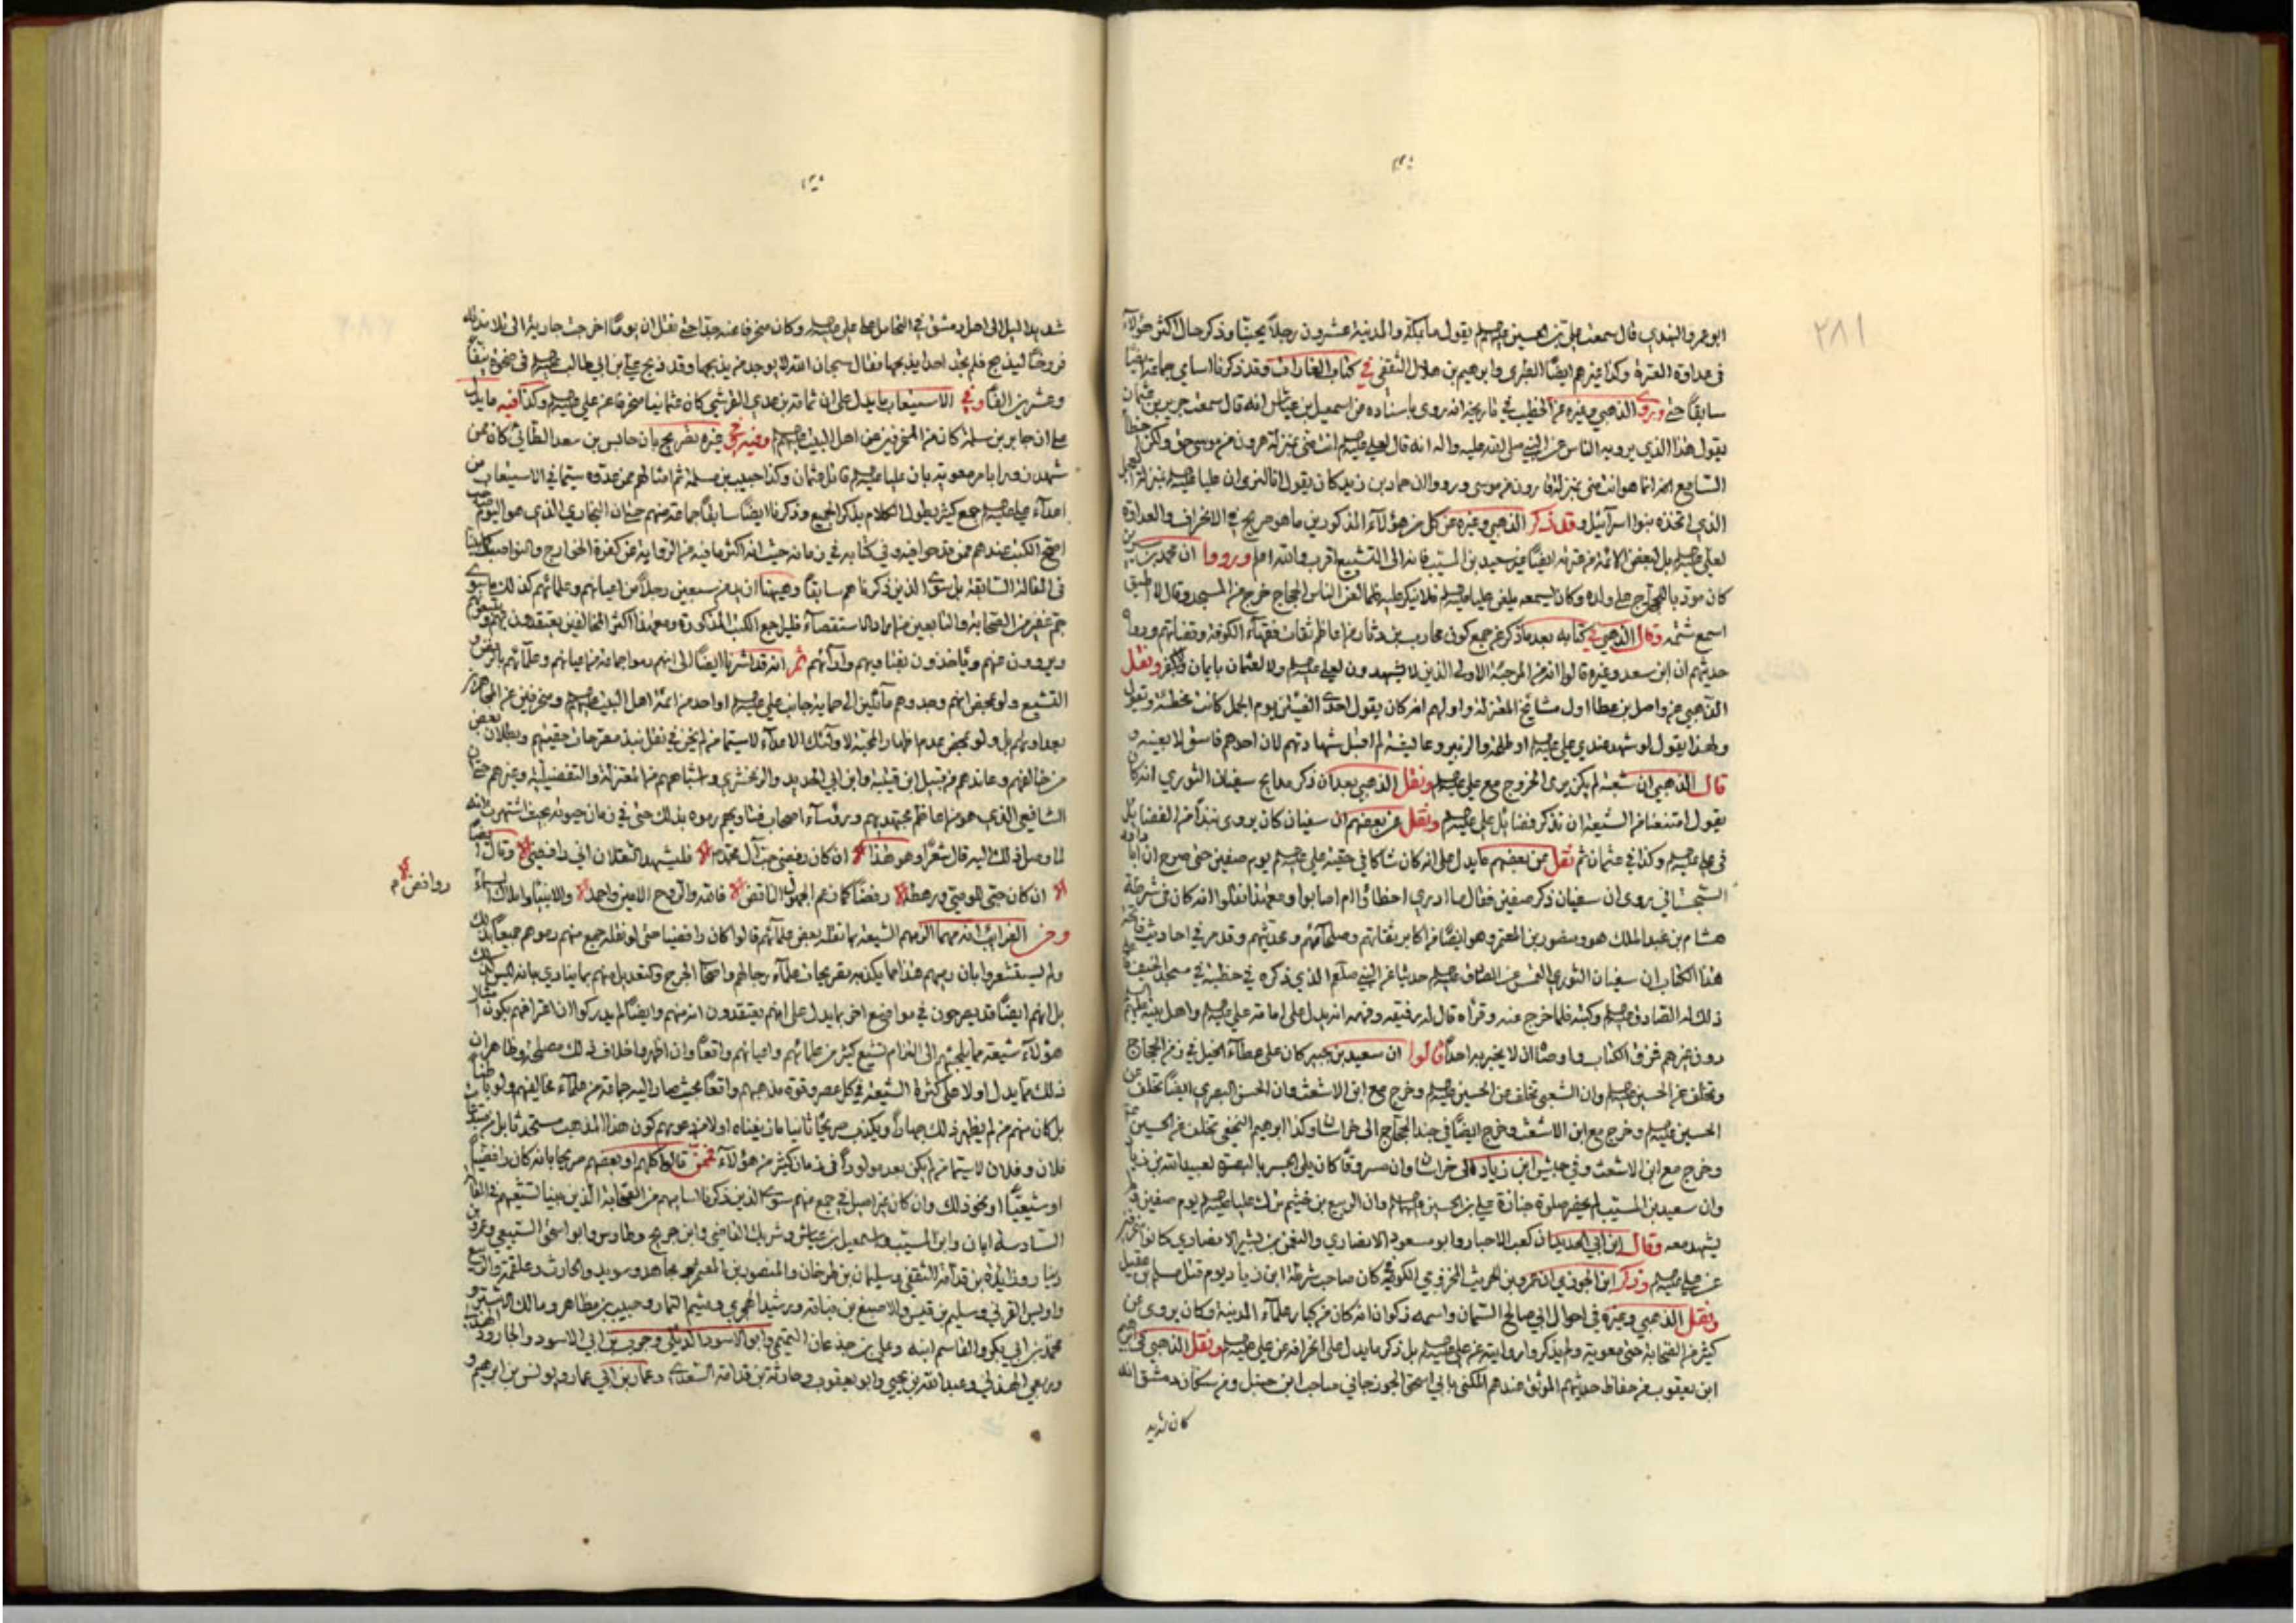 ٢٨١
ابو عمرو النهدي قال سمعت علي بن الحسين عليه السلام يقول ما بمكة والمدينة عشرون رجلاً يحبنا وذكر حال اكثر هؤلاء
في عداوة العترة وكذا غيرهم ايضاً الطبري وابرهيم بن هلال الثقفي في كتاب الغارات وقد ذكرنا اسامي جماعة ايضاً
سابقاً حتى وروى الذهبي وغيره عن الخطيب في تاريخه انه روى باسناده عن اسمعيل بن عياش انه قال سمعت حريز بن عثمان
يقول هذا الذي يرويه الناس عن النبي صلى الله عليه واله انه قال لعلي عليه السلام انت مني بمنزلة هرون من موسى حق ولكن اخطأ
السامع انما هو انت مني بمنزلة قارون من موسى ورووا ان حماد بن زيد كان يقول اترون ان عليا عليه السلام بمنزلة العجل
الذي اتخذه بنو اسرائيل وقد ذكر الذهبي وغيره عن كل من هؤلاء المذكورين ما هو صريح في الانحراف والعداوة
لعلي عليه السلام بل لبعض الائمة من قريته ايضاً غير سعيد بن المسيب فانه الى التشيع اقرب والله اعلم ورووا ان محمد بن سيرين
كان مودبا للحجاج على ولده وكان يسمعه يلعن عليا عليه السلام فلا ينكر عليه فلما لعن الناس الحجاج خرج من المسجد وقال لا اطيق
اسمع شتمه وقال الذهبي في كتابه بعد ما ذكر عن جمع كون محارب بن دثار من اعاظم ثقات فقهاء الكوفة وقضاتهم ورواة
حديثهم ان ابن سعد وغيره قالوا انه من المرجئة الاولى الذين لا يشهدون لعلي عليه السلام ولا لعثمان بايمان ولا كفر ونقل
الذهبي عن واصل بن عطا اول مشائخ المعتزلة واولهم انه كان يقول احدى الفئتين يوم الجمل كانت مخطئة
ولهذا يقول لو شهد عندي علي عليه السلام او طلحة والزبير وعايشة لم اقبل شهادتهم لان احدهم فاسق لا بعينه و
قال الذهبي ان شعبة لم يكن يرى الخروج مع علي عليه السلام ونقل الذهبي بعد ان ذكر مدايح سفيان الثوري انه كان
يقول امتنعنا من الشيعة ان نذكر فضائل علي عليه السلام ونقل عن بعضهم ان سفيان كان يروى نبذا من الفضايل
في علي عليه السلام وكذا في عثمان ثم نقل عن بعضهم ما يدل على انه كان شاكا في حقية علي عليه السلام يوم صفين حتى صرح ان ابا داود
السجستاني روى ان سفيان ذكر صفين فقال ما ادري اخطاؤا ام اصابوا ومع هذا نقلوا انه كان في شرطة
هشام بن عبد الملك هو ومنصور بن المعتمر وهو ايضا من اكابر ثقاتهم وصلحائهم ومحدثيهم وقد مر في احاديث
هذا الكتاب ان سفيان الثوري التمس عن الصادق عليه السلام حديثا عن النبي صلعم الذي ذكره في خطبته في مسجد الخيف
ذلك له الصادق عليه السلام وكتبه فلما خرج عنه وقرأه قال له رفيقه وفهمه انه يدل على امامة علي عليه السلام واهل بيته عليهم السلام
دون غيرهم خرق الكتاب واوصاه ان لا يخبر به احدا قالوا ان سعيد بن جبير كان على عطاء الخيل في زمن الحجاج
وتخلف عن الحسين عليه السلام وان الشعبي تخلف عن الحسين عليه السلام وخرج مع ابن الاشعث وان الحسن البصري ايضا تخلف عن
الحسين عليه السلام وخرج مع ابن الاشعث وخرج ايضاً في جند الحجاج الى خراسان وكذا ابرهيم النخعي تخلف عن الحسين
وخرج مع ابن الاشعث وفي جيش ابن زياد الى خراسان وان مسروقا كان يلي الجسر بالبصرة لعبيد الله بن زياد
وان سعيد بن المسيب لم يحضر صلوة جنازة علي بن الحسين عليهما السلام وان الربيع بن خثيم ترك عليا عليه السلام يوم صفين فلم
يشهد معه وقال ابن ابي الحديد ان كعب الاحبار وابو مسعود الانصاري والنعمن بن بشير الانصاري كانوا منحرفين
عن علي عليه السلام وذكر ابن الجوزي ان عمرو بن الحريث المخزومي الكوفي كان صاحب شرطة ابن زياد يوم قتل مسلم بن عقيل
ونقل الذهبي وغيره في احوال ابي صالح السمان واسمه ذكوان انه كان من كبار علماء المدينة وكان يروى عن
كثير من الصحابة حتى معوية ولم يذكروا روايته عن علي عليه السلام بل ذكر ما يدل على انحرافه عن علي عليه السلام ونقل الذهبي في ابرهيم
ابن يعقوب من حفاظ حديثهم الموثق عندهم المكنى بابي اسحق الجوزجاني صاحب ابن حنبل ومن سكان دمشق انه
كان شديد
شديد الميل الى اهل دمشق في التحامل على علي عليه السلام وكان منحرفا عنه جدا حتى نقل ان يوما اخرجت جارية الى تلامذته
فروخا ليذبح فلم يجد احدا يذبحها فقال سبحان الله لا يوجد من يذبحها وقد ذبح علي بن ابي طالب عليه السلام في ضحوة نيفا
وعشرين الفا وفي الاستيعاب ما يدل على ان ثمامة بن عدي القرشي كان عثمانيا منحرفا عن علي عليه السلام وكذا فيه ما يدل
على ان جابر بن سلمة كان من المنحرفين عن اهل البيت عليهم السلام وفيه وفي غيره تصريح بان حابس بن سعد الطائي كان ممن
شهد زورا بامر معوية بان عليا عليه السلام قاتل عثمان وكذا حبيب بن مسلمة ثم امثالهم ممن عدوه سيما في الاستيعاب من
اعداء علي عليه السلام جمع كثير يطول الكلام بذكر الجميع وذكرنا ايضا سابقا جماعة منهم حتى ان البخاري الذي هو اليوم صاحب
اصح الكتب عندهم ممن قدحوا فيه وفي كتابه في زمانه حيث انه اكثر ما فيه من الرواية عن كفرة الخوارج والنواصب
في المقالة السابقة بل سوى الذين ذكرناهم سابقا وهيهنا ازيد من سبعين رجلا من اعيانهم وعلمائهم كذلك ما سوى
جم غفير من الصحابة والتابعين من اراد الاستقصاء فليراجع الكتب المذكورة ومع هذا اكثر المخالفين يعتقدون بهم
ويروون عنهم وياخذون بفتاويهم وآرائهم ثم انه قد اشرنا ايضاً الى انهم رموا جماعة من اعيانهم وعلمائهم بالرفض و
التشيع ولو بمحض انهم وجدوهم مائلين الى حماية جانب علي عليه السلام او احد من ائمة اهل البيت عليهم السلام ومنحرفين عن المجاهرين
بعداوتهم بل ولو بمحض عدم اظهار المحبة لاولئك الاعداء لاسيما من لم يخن في نقل نبذ من تصريحات حقيتهم وبطلان بعض
من خالفهم وعاندهم من قبيل ابن قتيبة وابن ابي الحديد والزمخشري واشباههم من المعتزلة والتفضيلية وغيرهم حتى ان
الشافعي الذي هو من اعاظم مجتهديهم ورؤساء اصحاب فتاويهم رموه بذلك حتى في زمان حيوته بحيث اشتهرت انه
لما وصل ذلك اليه قال شعراً وهو هذا ان كان رفضي حب آل محمد فليشهد الثقلان اني رافضي وقال ايضاً
ان كان حبي للوصي ورهطه رفضا كما زعم الجهول الناقض فالله والروح الامين واحمد والانبياء واملاك السماء
روافض
ومن الغرايب انه مهما الزمهم الشيعة بما نقله بعض علمائهم قالوا كان رافضيا حتى لو نقله جمع منهم رموهم جميعا بذلك
ولم يستشعروا بان رميهم هذا مما يكذبه تصريحات علماء رجالهم واصحاب الجرح والتعديل منهم بما ينادي بانه ليس كذلك
بل انهم ايضا قد يصرحون في مواضع اخر بما يدل على انهم يعتقدون انه منهم وايضا لم يدركوا ان اعترافهم بكون امثال
هؤلاء شيعة مما يلجئهم الى التزام تشيع كثير من علمائهم واعيانهم واقعاً وان اظهروا خلاف ذلك مصلحة وظاهر ان
ذلك مما يدل اولا على كثرة الشيعة في كل عصر وقوة مذهبهم واقعاً بحيث صار اليه جماعة من علماء مخالفيهم ولو باطنا
بل كان منهم من لم يظهر ذلك جهاراً ويكذب صريحا ثانيا ما زيفناه اولا من دعويهم كون هذا المذهب مستحدثا بل من مبتدعات
فلان وفلان لاسيما من لم يكن بعد مولودا في زمان كثير من هؤلاء فممن قالوا كلهم او بعضهم صريحا بانه كان رافضيا
او شيعيا او نحو ذلك وان كان غير اصيل في جمع منهم سوى الذين ذكرنا اساميهم من الصحابة الذين بينا تشيعهم في المقالة
السادسة ابان وابن المسيب واسمعيل بن عياش وشريك القاضي وابن جريج وطاوس وابو اسحق السبيعي وعمرو بن
دينار وزايدة بن قدامة الثقفي وسليمان بن طرخان والمنصور بن المعتمر ومجاهد وسويد والحارث وعلقمة والربيع
واويس القرني وسليم بن قيس والاصبغ بن نباتة ورشيد الهجري وميثم التمار وحبيب بن مظاهر ومالك الاشتر و
محمد بن ابي بكر والقاسم ابنه وعلي بن جذعان التيمي وابو الاسود الديلي وحرب بن ابي الاسود والجارود
وربعي الهذلي وعبد الله بن يحيى وابو يعقوب وجارية بن قدامة السعدي وعمار بن ابي عمار ويونس بن ابرهيم و